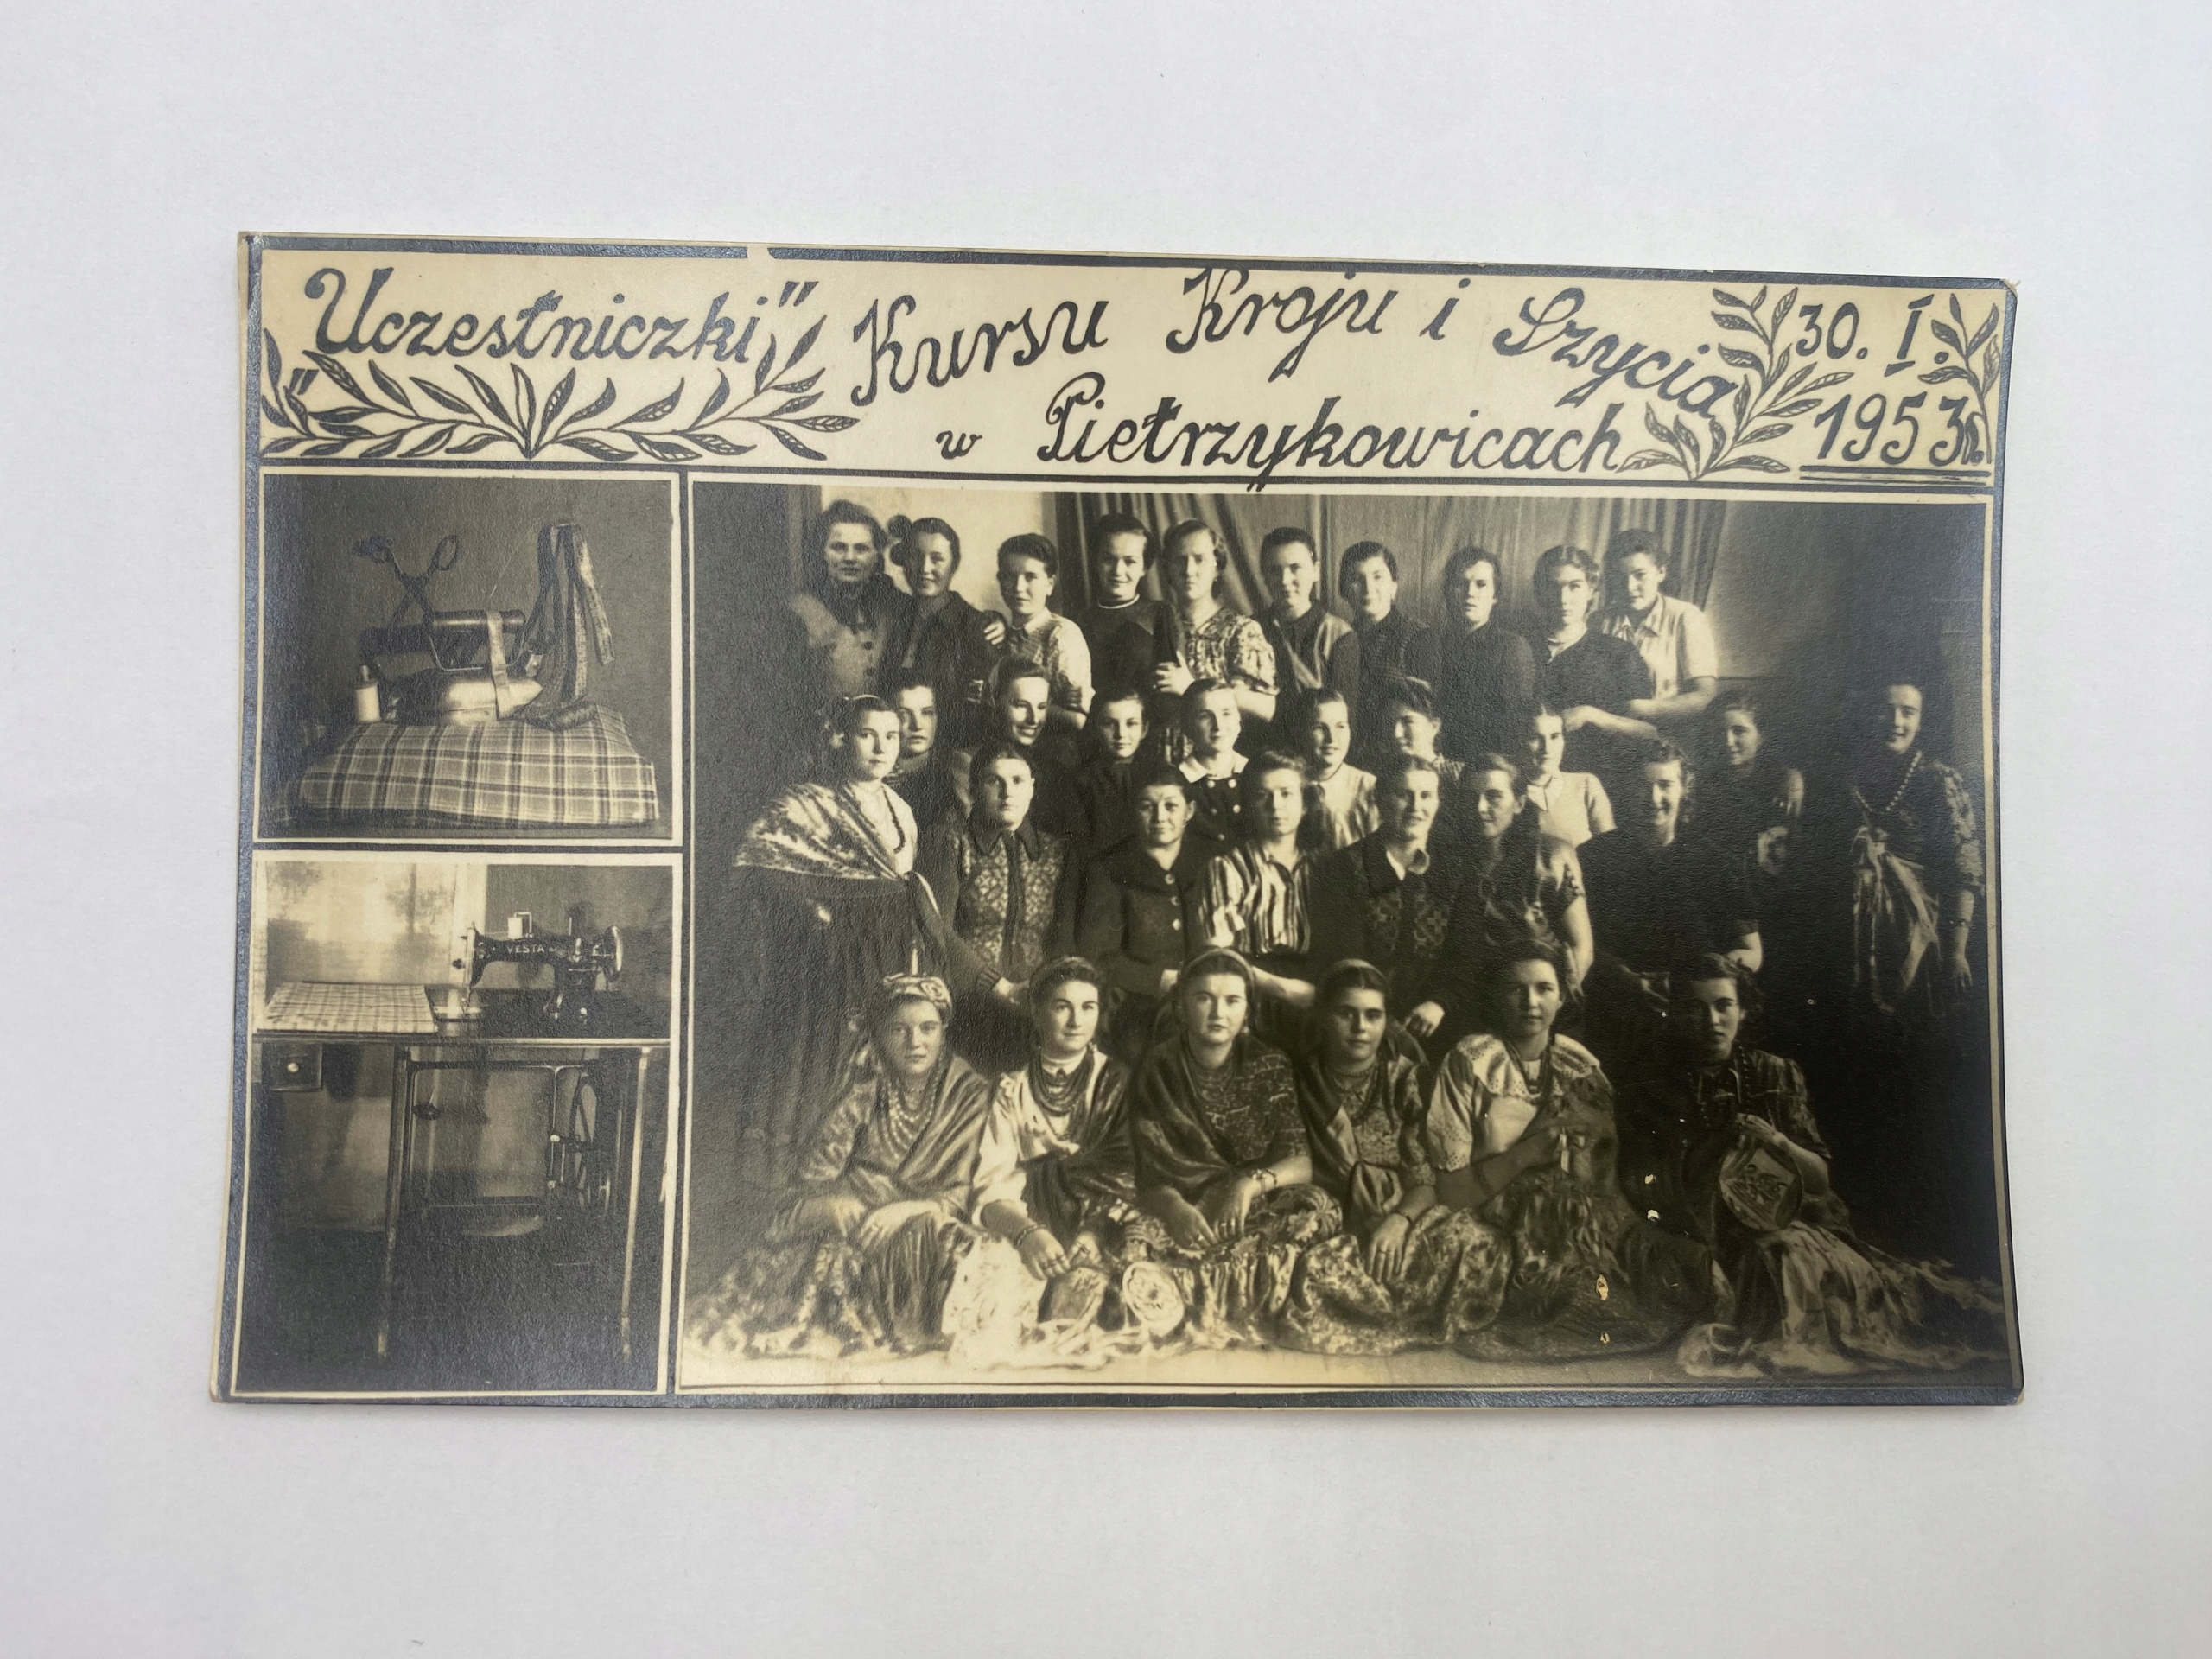 „Uczestniczki" Kursu Kroju i Szycia
w Pietrzykowicach
30. I.
1953r.
VESTA